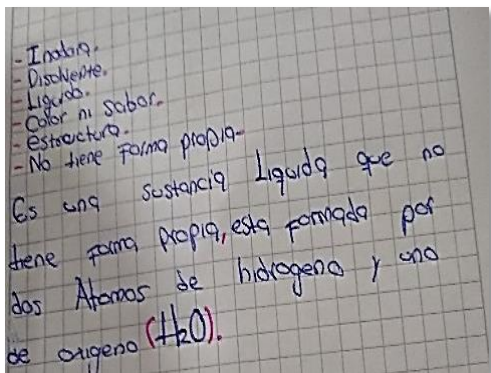 - Inodora.
- Disolvente.
- Liquido.
- Color ni sabor.
- estructura.
- No tiene forma propia.
Es una sustancia Liquida que no
tiene forma propia, esta formada por
dos Atomos de hidrogeno y uno
de oxigeno (H2O).